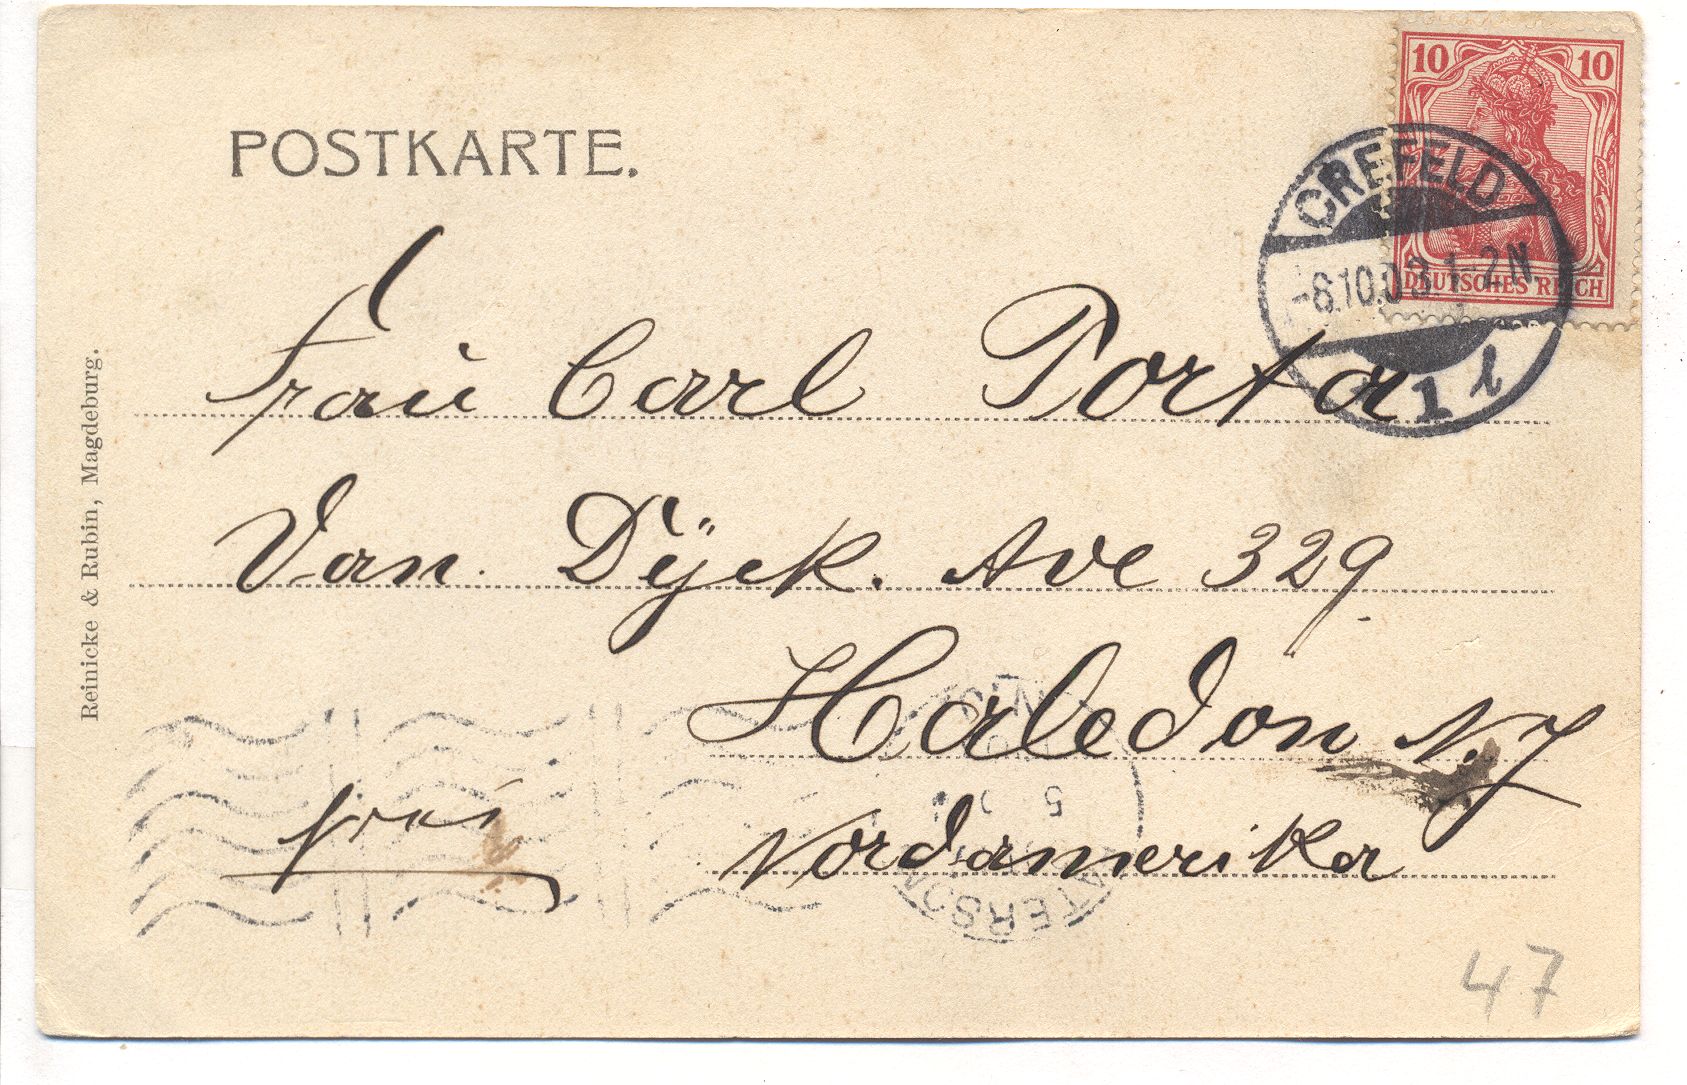 POSTKARTE.
10 10
DEUTSCHES REICH
CREFELD
-8.10.03.1-2N.
1 l
Frau Carl Porta
Van Dÿck. Ave 329.
Haledon N.J
Nordamerika
frei
Reinicke & Rubin, Magdeburg.
5
47